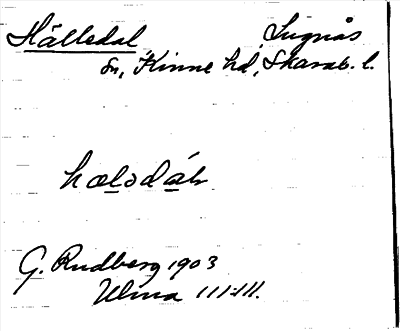 Hälledal Lugnås
sn, Kinne hd, Skarab. l.
G. Rudberg 1903
Ulma 111:111.